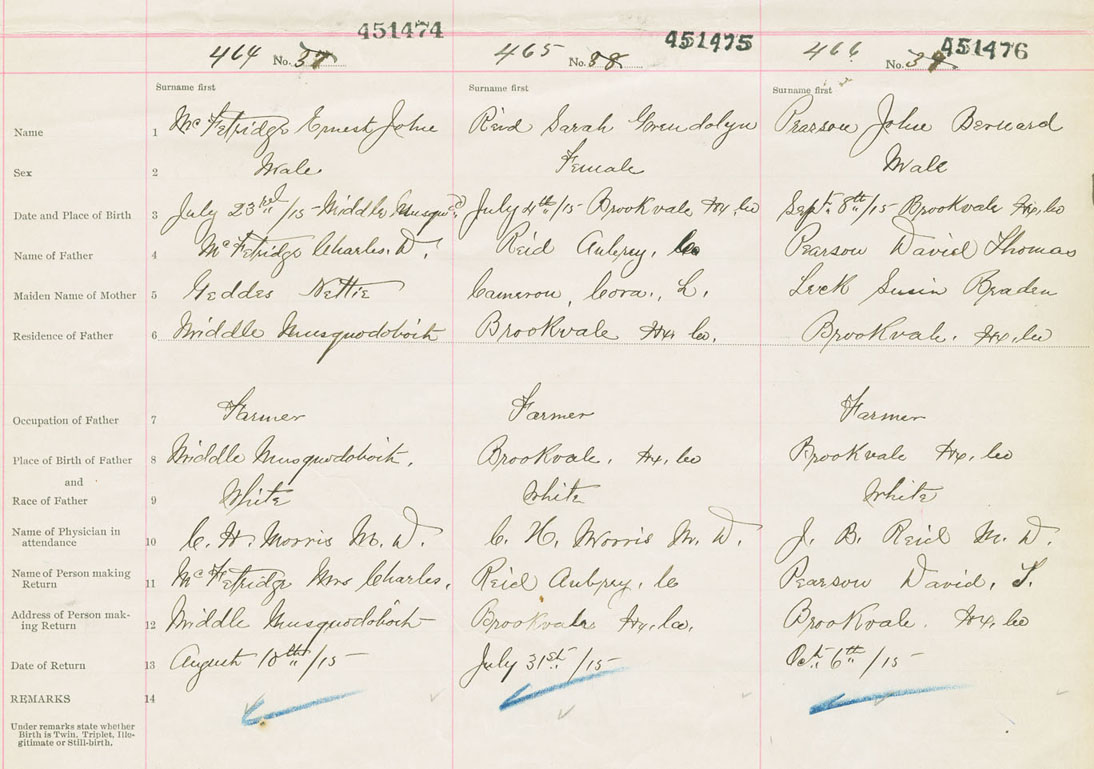 451474 451475 451476
464 No. 37 465 No. 38 466 No. 39
Surname first Surname first Surname first
Name 1 McFetridge Ernest John Reid Sarah Gwendolyn Pearson John Bernard
Sex 2 Male Female Male
Date and Place of Birth 3 July 23rd/15 Middle Musquod July 4th/15 Brookvale Hx. Co Sept. 8th/15 Brookvale Hx. Co
Name of Father 4 McFetridge Charles. D. Reid Aubrey, Pearson David Thomas
Maiden Name of Mother 5 Geddes Nettie Cameron, Cora., L. Susin
Residence of Father 6 Middle Musquodoboit Brookvale Hx. Co. Brookvale. Hx. Co
Occupation of Father 7 Farmer Farmer Farmer
Place of Birth of Father 8 Middle Musquodoboit. Brookvale. Hx. Co Brookvale Hx. Co
and
Race of Father 9 White White White
Name of Physician in
attendance 10 C. H. Morris M. D. C. H. Morris M. D. J. B. Reid M. D.
Name of Person making
Return 11 McFetridge Mrs Charles. Reid Aubrey, C Pearson David, T.
Address of Person mak-
ing Return 12 Middle Musquodoboit Brookvale Hx. Co. Brookvale. Hx. Co
Date of Return 13 August 10th/15 July 31st/15 Oct. 6th/15
REMARKS 14
Under remarks state whether
Birth is Twin, Triplet, Ille-
gitimate or Still-birth.